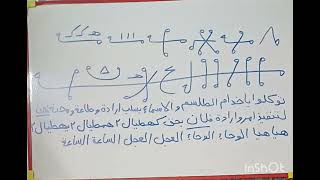 توكلوا ياخدام الطلسم والاسماء بسلب ارادة وطاعة ومحبة
لتنفيذ امر وارادة فلان بحق كهطيال ٢ مهطيال ٢ يهطيال ٢
هيا هيا الوحا الوحا العجل العجل الساعة الساعة
InShOt